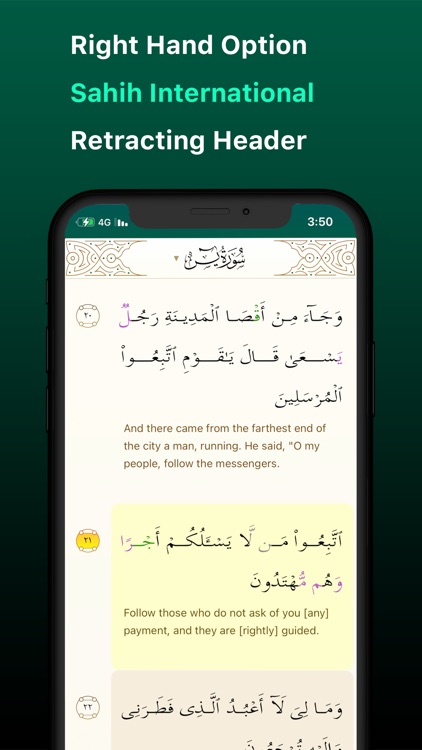 Right Hand Option
Sahih International
Retracting Header
4G
3:50
سُورَةُ يسٓ
٢٠
وَجَآءَ مِنْ أَقْصَا ٱلْمَدِينَةِ رَجُلٌ
يَسْعَىٰ قَالَ يَـٰقَوْمِ ٱتَّبِعُوا۟
ٱلْمُرْسَلِينَ
And there came from the farthest end of
the city a man, running. He said, "O my
people, follow the messengers.
٢١
ٱتَّبِعُوا۟ مَن لَّا يَسْـَٔلُكُمْ أَجْرًا
وَهُم مُّهْتَدُونَ
Follow those who do not ask of you [any]
payment, and they are [rightly] guided.
٢٢
وَمَا لِىَ لَآ أَعْبُدُ ٱلَّذِى فَطَرَنِى
وَإِلَيْهِ تُرْجَعُونَ